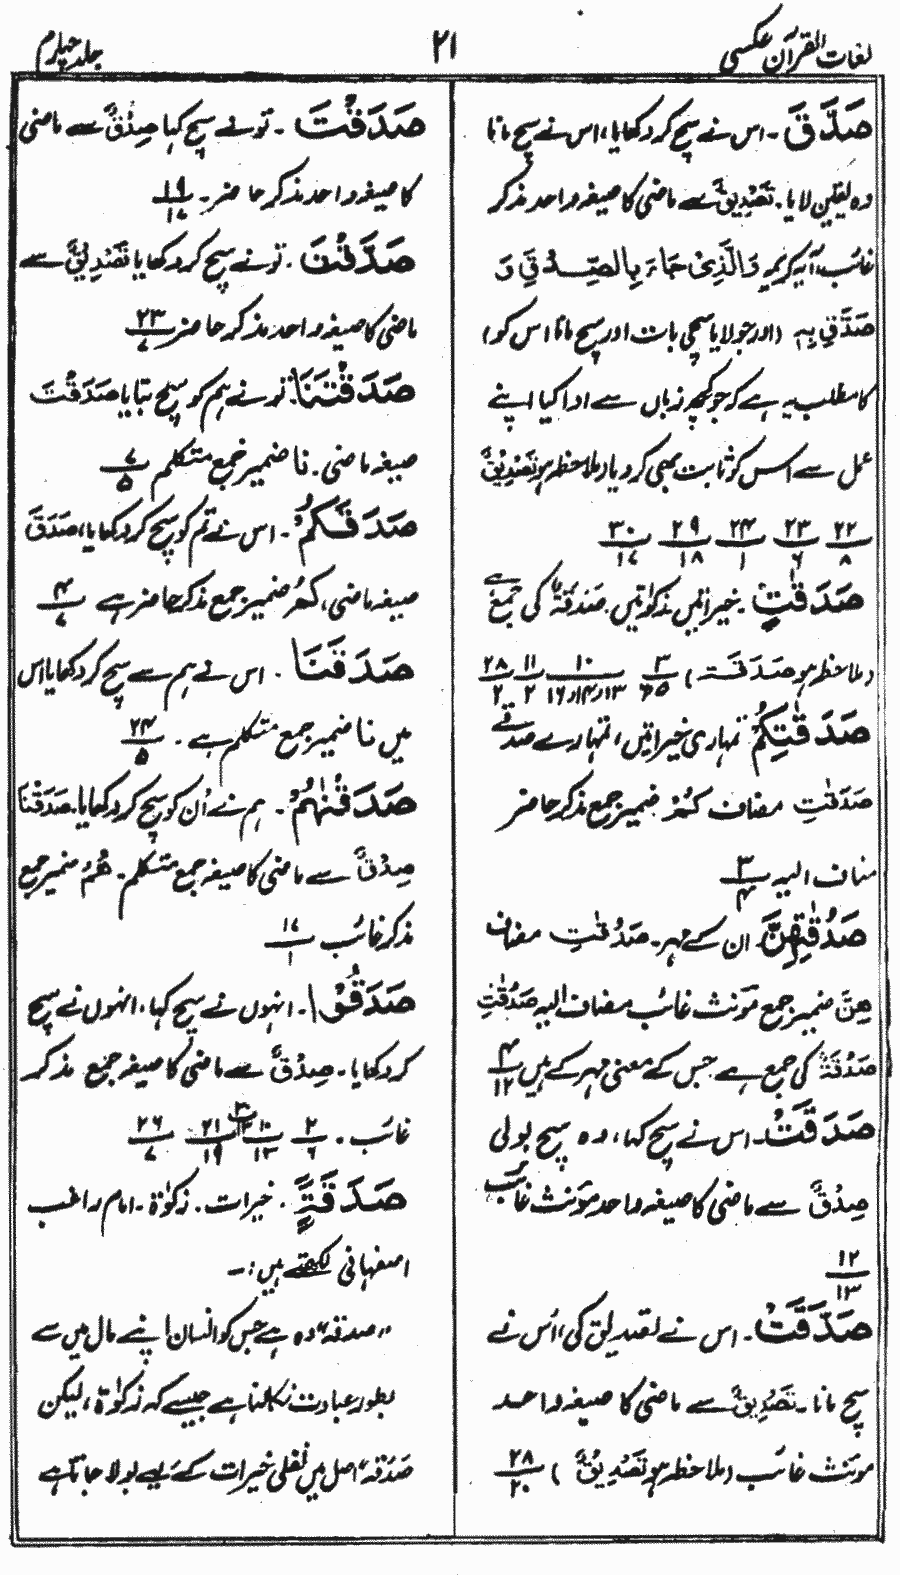 لغات القرآن عکسی
۲۱
جلد چہارم
صَدَّقَ ۔ اس نے سچ کر دکھایا، اس نے سچ مانا
وہ یقین لایا۔ تَصْدِیْقٌ سے ماضی کا صیغہ واحد مذکر
غائب، آیہ کریمہ وَالَّذِیْ جَآءَ بِالصِّدْقِ وَ
صَدَّقَ بِہٖ (اور جو لایا سچی بات اور سچ مانا اس کو)
کا مطلب یہ ہے کہ جو کچھ زباں سے ادا کیا اپنے
عمل سے اس کو ثابت بھی کر دیا (ملاحظہ ہو تَصْدِیْقٌ)
۲۲/۸ ۲۳/۶ ۲۴/۱ ۲۹/۱۸ ۳۰/۱۷
صَدَقٰتٍ۔ خیراتیں زکوٰتیں۔ صَدَقَۃٌ کی جمع ہے
(ملاحظہ ہو صَدَقَۃ) ۳/۶،۵ ۱۰/۱۳ و ۱۴ و ۱۶ ۱۱/۲ ۲۸/۲
صَدَقٰتِکُمْ تمہاری خیراتیں، تمہارے صدقے
صَدَقٰتِ مضاف کُمْ ضمیر جمع مذکر حاضر
مضاف الیہ ۳/۴
صَدُقٰتِہِنَّ ان کے مہر۔ صَدُقٰتِ مضاف
ہِنَّ ضمیر جمع مؤنث غائب مضاف الیہ صَدُقٰتِ
صَدُقَۃٌ کی جمع ہے جس کے معنی مہر کے ہیں ۴/۱۲
صَدَقَتْ۔ اس نے سچ کہا، وہ سچ بولی
صِدْقٌ سے ماضی کا صیغہ واحد مؤنث غائب
۱۲/۱۳
صَدَّقَتْ۔ اس نے تصدیق کی، اُس نے
سچ مانا۔ تَصْدِیْقٌ سے ماضی کا صیغہ واحد
مؤنث غائب (ملاحظہ ہو تَصْدِیْقٌ) ۲۸/۲۰
صَدَقْتَ۔ تو نے سچ کہا صِدْقٌ سے ماضی
کا صیغہ واحد مذکر حاضر۔ ۱۹/۱۷
صَدَّقْتَ۔ تو نے سچ کر دکھایا تَصْدِیْقٌ سے
ماضی کا صیغہ واحد مذکر حاضر ۲۳/۷
صَدَقْتَنَا تو نے ہم کو سچ بتایا صَدَقْتَ
صیغہ ماضی۔ نا ضمیر جمع متکلم ۷/۵
صَدَقَکُمْ۔ اس نے تم کو سچ کر دکھایا، صَدَقَ
صیغہ ماضی، کُمْ ضمیر جمع مذکر حاضر ہے ۴/۷
صَدَقَنَا۔ اس نے ہم سے سچ کر دکھایا اس
میں نا ضمیر جمع متکلم ہے۔ ۲۴/۵
صَدَقْنٰہُمْ۔ ہم نے اُن کو سچ کر دکھایا۔ صَدَقْنَا
صِدْقٌ سے ماضی کا صیغہ جمع متکلم۔ ھُمْ ضمیر جمع
مذکر غائب ۱۷/۱
صَدَقُوْا۔ انہوں نے سچ کہا، انہوں نے سچ
کر دکھایا۔ صِدْقٌ سے ماضی کا صیغہ جمع مذکر
غائب۔ ۲/۶ ۱۰/۱۳ ۲۱/۱۹ ۲۶/۷
صَدَقَۃٍ۔ خیرات۔ زکوٰۃ۔ امام راغب
اصفہانی لکھتے ہیں:۔
"صدقہ" وہ ہے جس کو انسان اپنے مال میں سے
بطور عبادت نکالتا ہے جیسے کہ زکوٰۃ، لیکن
صَدَقہ" اصل میں نفلی خیرات کے لیے بولا جاتا ہے